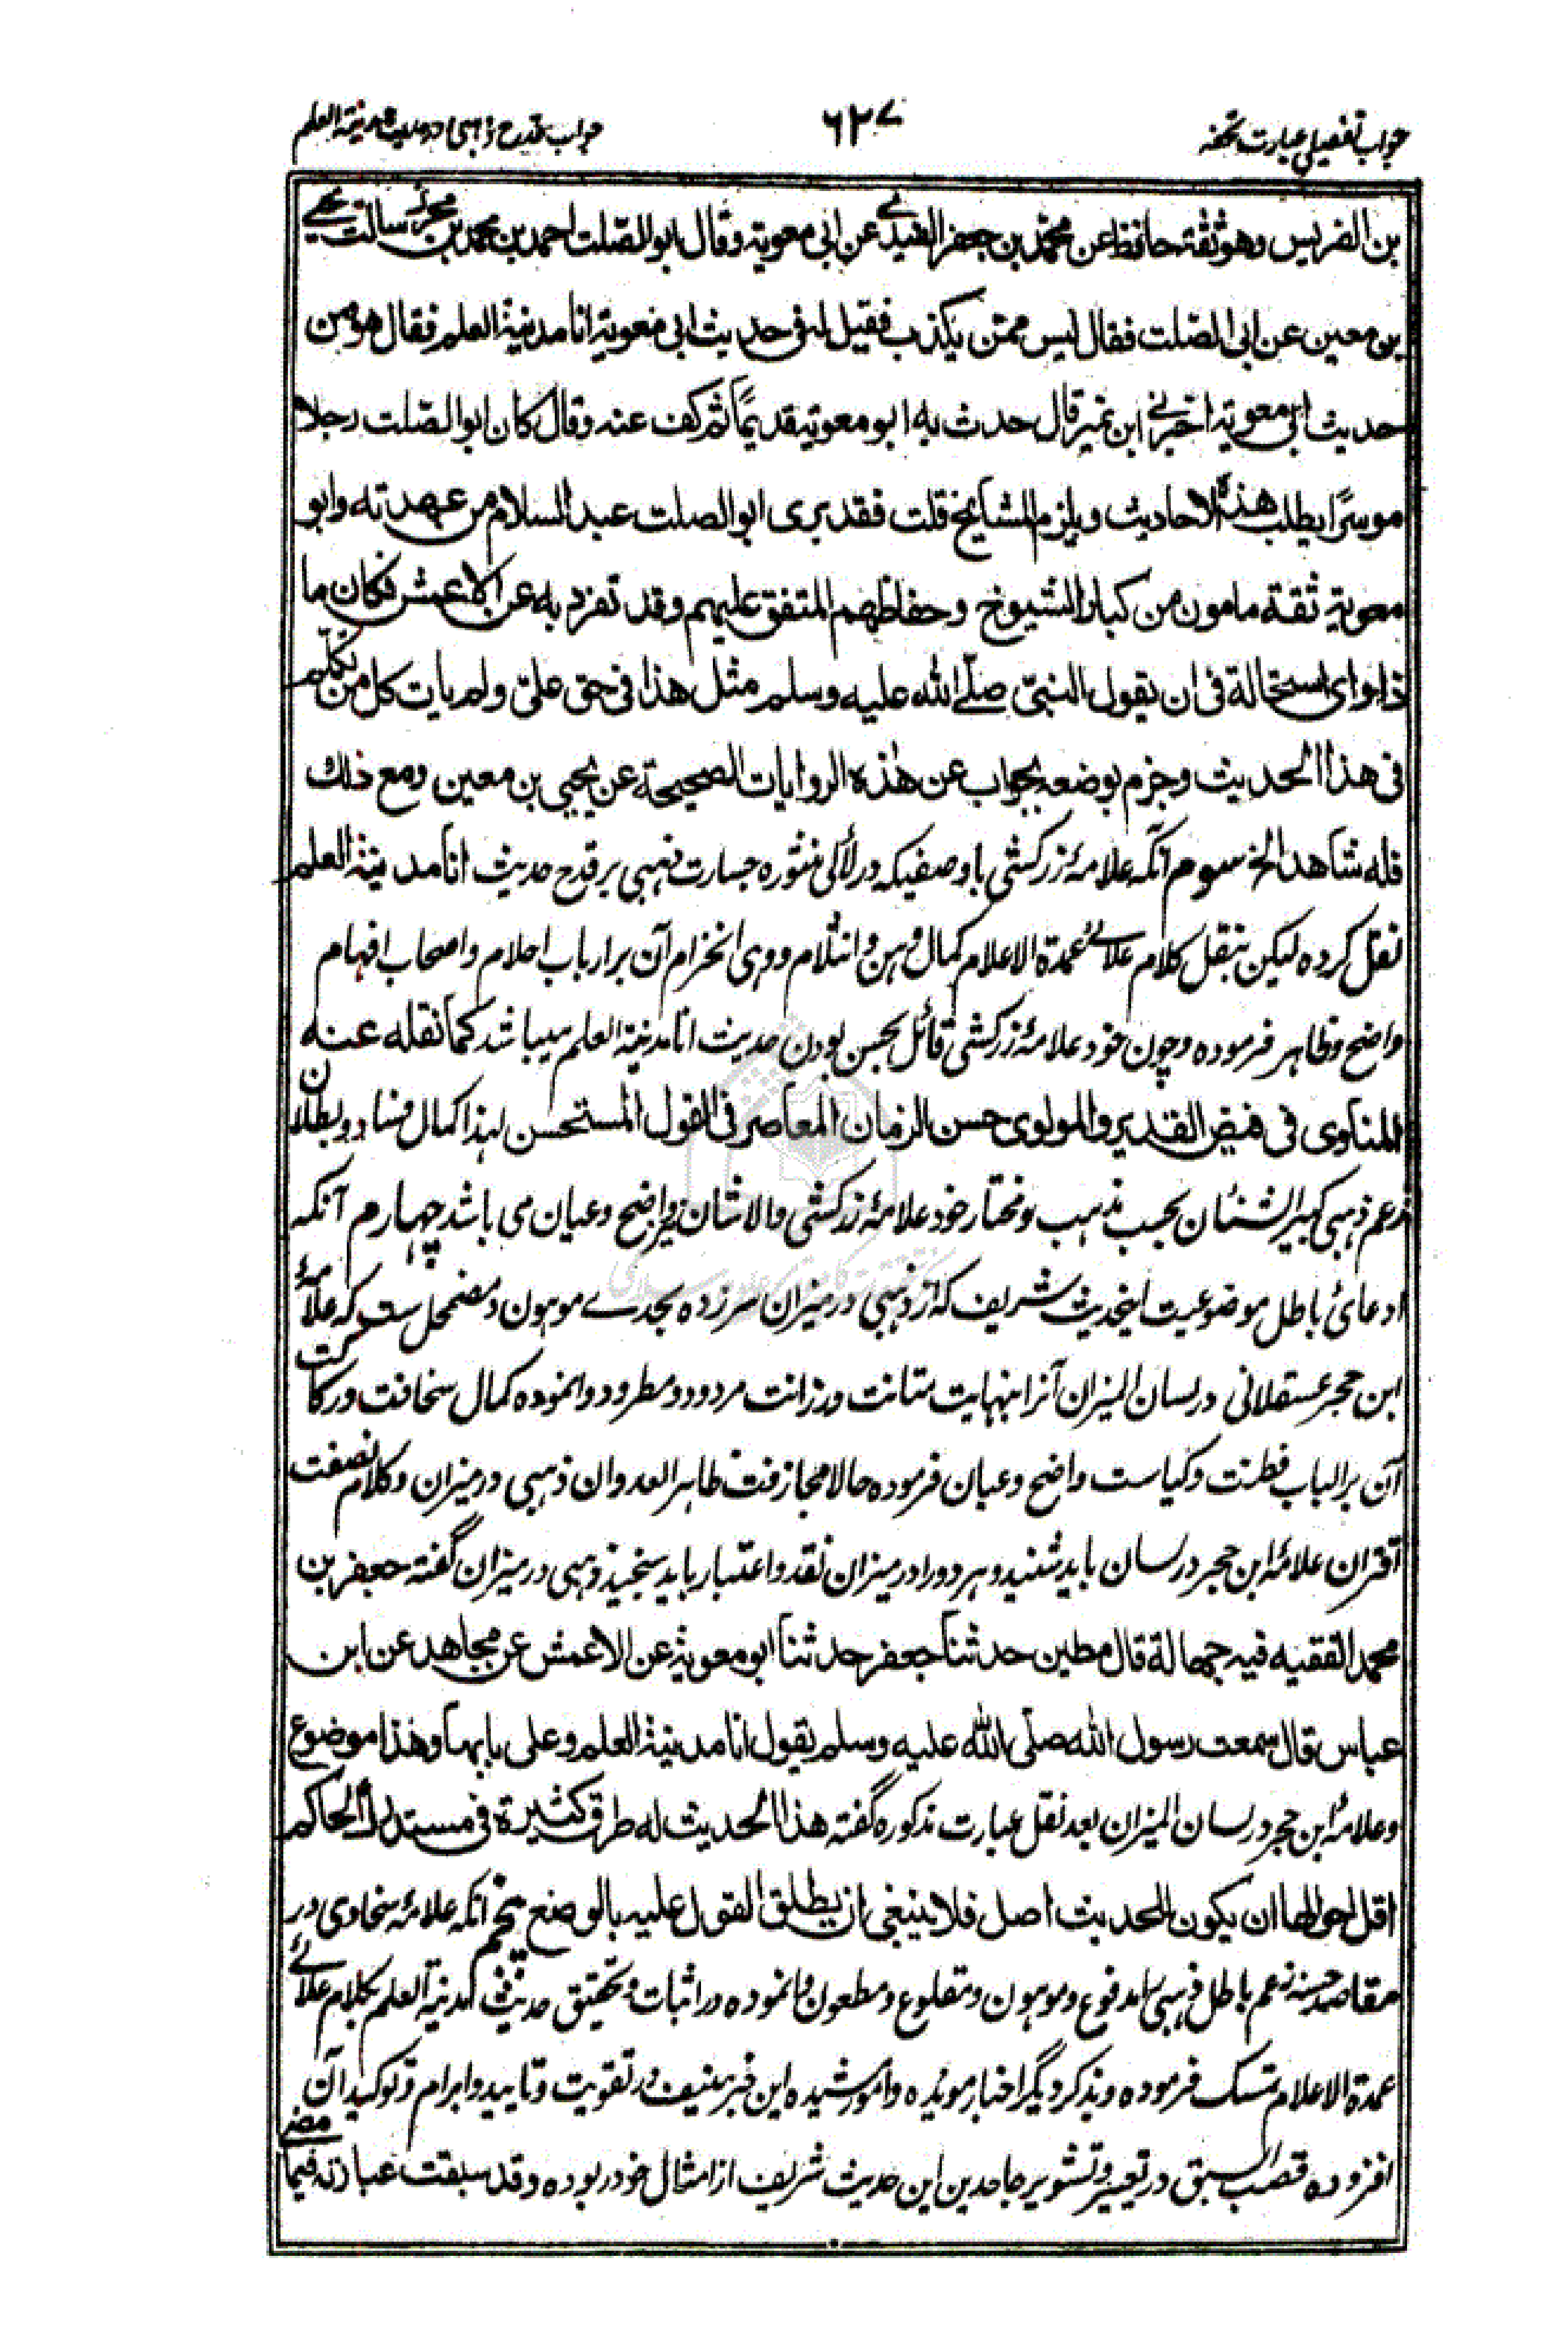 جواب تفصیلی عبارت تحفه
۶۲۷
جواب قدح ذهبی در حدیث مدینة العلم
بن الضریس وهو ثقة حافظ عن محمّد بن جعفر الفیدی عن ابی معویة وقال ابو الصّلت احمد بن محمد بن محرز سالت یحیی
بن معین عن ابی الصّلت فقال لیس ممّن یکذب فقیل له فی حدیث ابی معویة انا مدینة العلم فقال هو من
حدیث ابی معویة اخبرنی ابن نمیر قال حدث به ابو معویة قدیمًا ثم کف عنه وقال کان ابو الصّلت رجلا
موسرًا یطلب هذه الاحادیث ویلزم المشایخ قلت فقد بری ابو الصلت عبد السلام من عهدته وابو
معویة ثقة مامون من کبار الشیوخ وحفاظهم المتفق علیهم وقد تفرد به عن الاعمش فکان ما
ذا وای استحالة فی ان یقول النبیّ صلّے الله علیه وسلم مثل هذا فی حق علیّ ولم یات کل من تکلّم
فی هذا الحدیث وجزم بوضعه بجواب عن هٰذه الروایات الصحیحة عن یحیی بن معین ومع ذلك
فله شاهد الخ سوم آنکه علامۀ زرکشی باوصفیکه در لآلی منثوره جسارت ذهبی بر قدح حدیث انا مدینة العلم
نقل کرده لیکن بنقل کلام علائے عمدة الاعلام کمال وهن وانثلام ووهی انخرام آن بر ارباب احلام واصحاب افهام
واضح وظاهر فرموده وچون خود علامۀ زرکشی قائل بحسن بودن حدیث انا مدینة العلم میباشد کما نقله عنه
المناوی فی فیض القدیر والمولوی حسن الزمان المعاصر فی القول المستحسن لهذا کمال فساد وبطلان
زعم ذهبی کبیر الشنئان بحسب مذهب ومختار خود علامۀ زرکشی والاشان نیز واضح وعیان می باشد چهارم آنکه
ادعائ باطل موضوعیت اینحدیث شریف که از ذهبی در میزان سرزده بحدے موهون ومضمحل ست که علامۀ
ابن حجر عسقلانی در لسان المیزان آنرا بنهایت متانت ورزانت مردود ومطرود وانموده کمال سخافت ورکاکت
آن بر الباب فطنت وکیاست واضح وعیان فرموده حالا مجازفت ظاهر العدوان ذهبی در میزان وکلام نصفت
اقتران علامۀ ابن حجر در لسان باید شنید وهر دو را در میزان نقد واعتبار باید سنجید ذهبی در میزان گفته جعفر بن
محمد الفقیه فیه جهالة قال مطین حدثنا جعفر حدثنا ابو معویة عن الاعمش عن مجاهد عن ابن
عباس قال سمعت رسول الله صلّی الله علیه وسلم یقول انا مدینة العلم وعلی بابها وهذا موضوع
وعلامۀ ابن حجر در لسان المیزان بعد نقل عبارت مذکوره گفته هذا الحدیث له طرق کثیرة فی مستدرك الحاکم
اقل احوالها ان یکون للحدیث اصل فلا ینبغی ان یطلق القول علیه بالوضع پنجم آنکه علامۀ سخاوی در
مقاصد حسنه زعم باطل ذهبی را مدفوع وموهون ومقلوع ومطعون وانموده در اثبات وتحقیق حدیث مدینة العلم بکلام علائے
عمدة الاعلام تمسک فرموده وبذکر دیگر اخبار مؤیده وامور مشیده این خبر منیف در تقویت وتایید وابرام وتوکید آن
افزوده قصب السبق در تعییر وتشویر جاحدین این حدیث شریف از امثال خود ربوده وقد سبقت عبارته فیما مضی